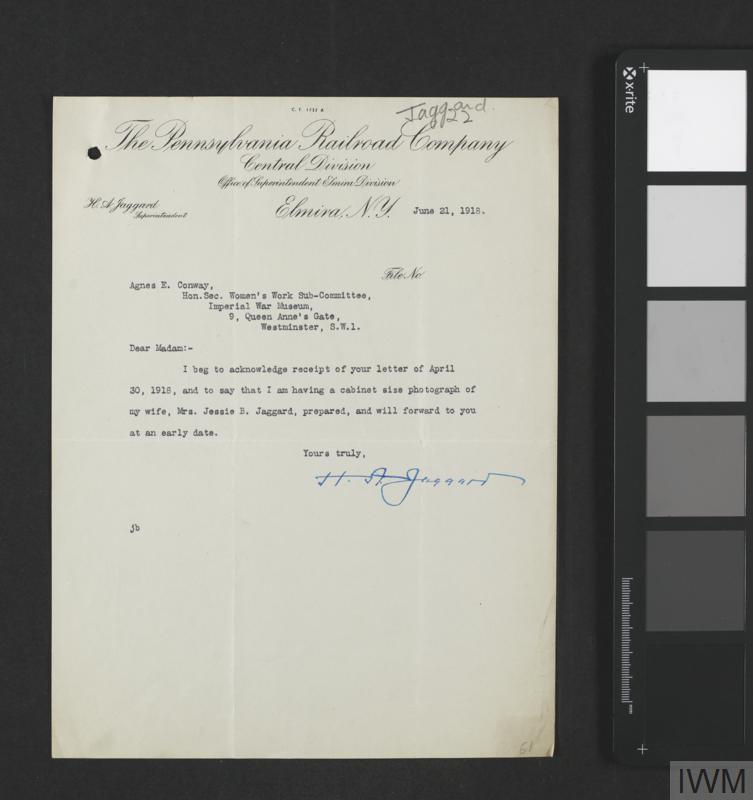 Jaggard.
22
The Pennsylvania Railroad Company
Central Division
Office of Superintendent Elmira Division
H. A. Jaggard
Superintendent
Elmira, N. Y. June 21, 1918.
File No
Agnes E. Conway,
Hon.Sec. Women's Work Sub-Committee,
Imperial War Museum,
9, Queen Anne's Gate,
Westminster, S.W.1.
Dear Madam:-
I beg to acknowledge receipt of your letter of April
30, 1918, and to say that I am having a cabinet size photograph of
my wife, Mrs. Jessie B. Jaggard, prepared, and will forward to you
at an early date.
Yours truly,
H. A. Jaggard
jb
x-rite
mm
IWM